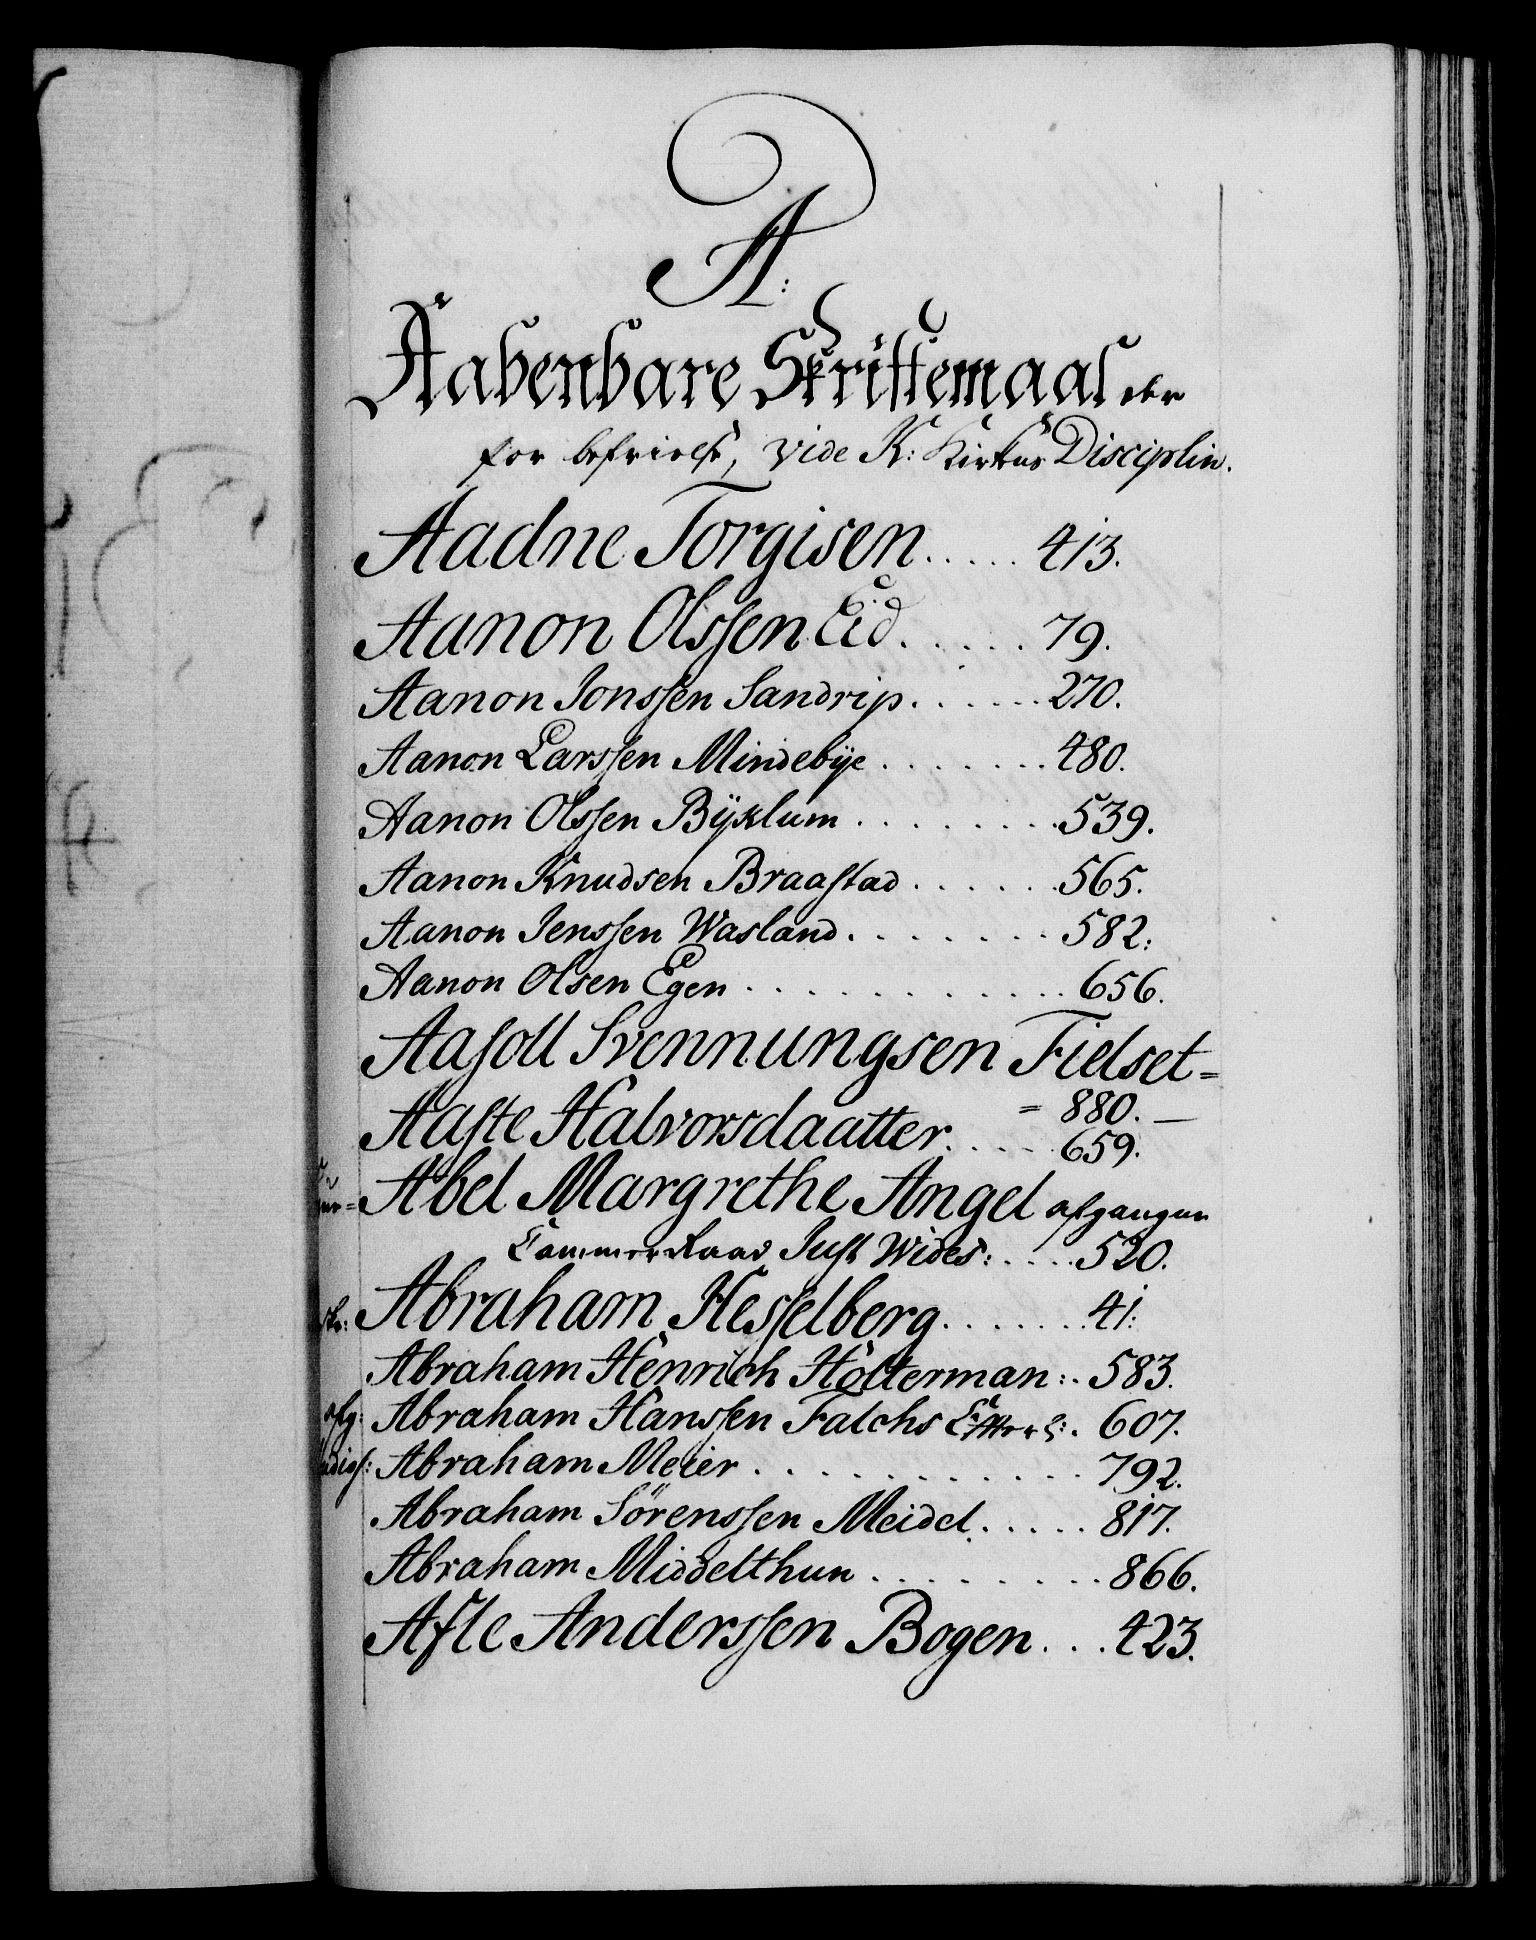 A:
Aabenbare Skriftemaal der
for befrielse, vide K: Kirkens Disciplin.
Aadne Torgisen..... 413.
Aanon Olssen Eid...... 79.
Aanon Jonssen Sandrip...... 270.
Aanon Larssen Mindebÿe........ 480.
Aanon Olssen Bÿklum......... 539.
Aanon Knudsen Braastad...... 565.
Aanon Jenssen Wasland........ 582:
Aanon Olsen Egen............ 656.
Aasoll Svennungsen Fielset=
= 880.—
Aaste Halvorsdaatter..... 659.
Abel Margrethe Angel afgangne
Cammer Raad Just Wides:.... 520.
Abraham Hesselberg....... 41:
Abraham Henrich Holterman:. 583.
afg: Abraham Hanssen Falchs Efterl:. 607.
Abraham Meier............ 792.
Abraham Sörenssen Meidel..... 817.
Abraham Middelthun......... 866.
Afle Anderssen Bogen... 423.